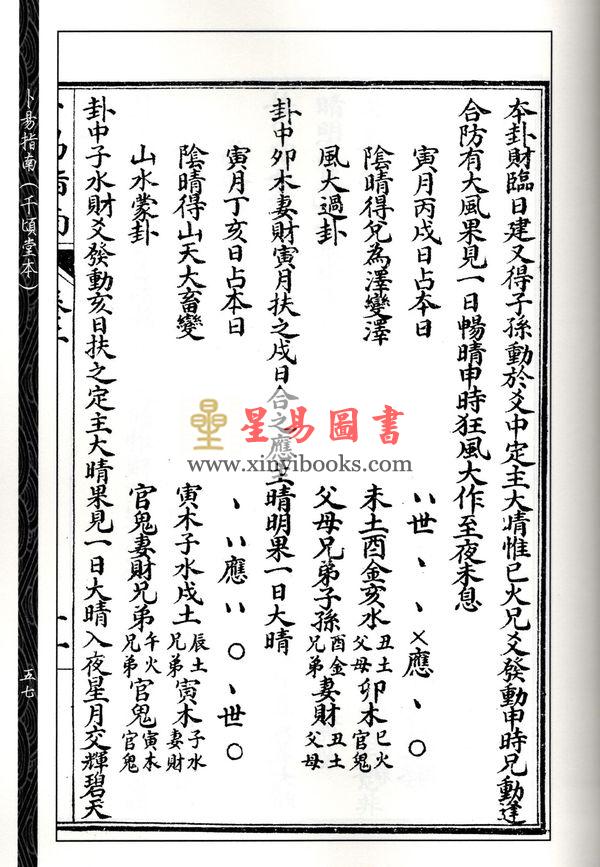 本卦財臨日建又得子孫動於爻中定主大晴惟巳火兄爻發動申時兄動逢
合防有大風果見一日暢晴申時狂風大作至夜未息
寅月丙戌日占本日 〃世、、×應、○
陰晴得兌為澤變澤 未土酉金亥水 丑土 父母 卯木 巳火 官鬼
風大過卦 父母兄弟子孫 酉金 兄弟 妻財 丑土 父母
卦中卯木妻財寅月扶之戌日合之應主晴明果一日大晴
寅月丁亥日占本日 、〃應〃○、世○
陰晴得山天大畜變 寅木子水戌土 辰土 兄弟 寅木 子水 妻財
山水蒙卦 官鬼妻財兄弟 午火 兄弟 官鬼 寅木 官鬼
卦中子水財爻發動亥日扶之定主大晴果見一日大晴入夜星月交輝碧天
卜易指南(千頃堂本)
五七
星易圖書
www.xinyibooks.com